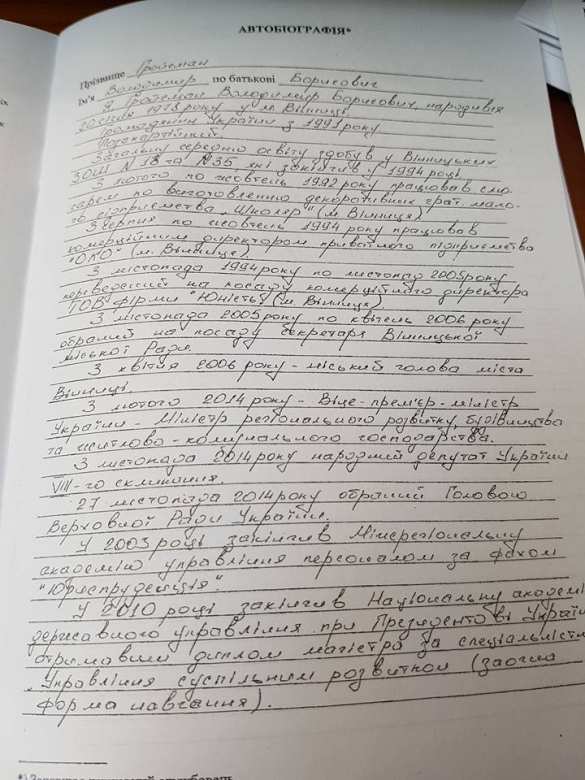 АВТОБІОГРАФІЯ*
Прізвище Гройсман
Ім'я Володимир по батькові Борисович
Я Гройсман Володимир Борисович народився
20 січня 1978 року у м. Вінниці
Громадянин України з 1991 року
Позапартійний.
Загальну середню освіту здобув у Вінницьких
ЗОШ №18 та №35 які закінчив у 1994 році
З лютого по жовтень 1992 року працював слю-
сарем по виготовленню декоративних грат. мало-
го підприємства „Школяр" (м. Вінниця)
З серпня по жовтень 1994 року працював
комерційним директором приватного підприємства
"ОКО" (м. Вінниця).
З листопада 1994 року по листопад 2005 року
переведений на посаду комерційного директора
ТОВ фірми "Юність" (м. Вінниця)
З листопада 2005 року по квітень 2006 року
обраний на посаду секретаря Вінницької
міської Ради.
З квітня 2006 року - міський голова міста
Вінниці.
З лютого 2014 року - Віце-прем'єр-міністр
України - Міністр регіонального розвитку, будівництва
та житлово-комунального господарства.
З листопада 2014 року народний депутат України
VIII-го скликання.
27 листопада 2014 року обраний Головою
Верховної Ради України.
У 2003 році закінчив Міжрегіональну
академію управління персоналом за фахом
"Юриспруденція".
У 2010 році закінчив Національну академі
державного управління при Президентові Україн
отримавши диплом магістра за спеціальніст
„Управління суспільним розвитком (заочна
форма навчання).